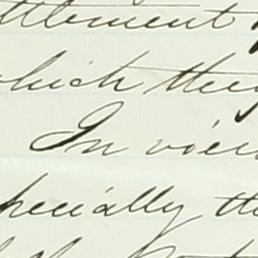 ttlement
which they
In view
pecially the